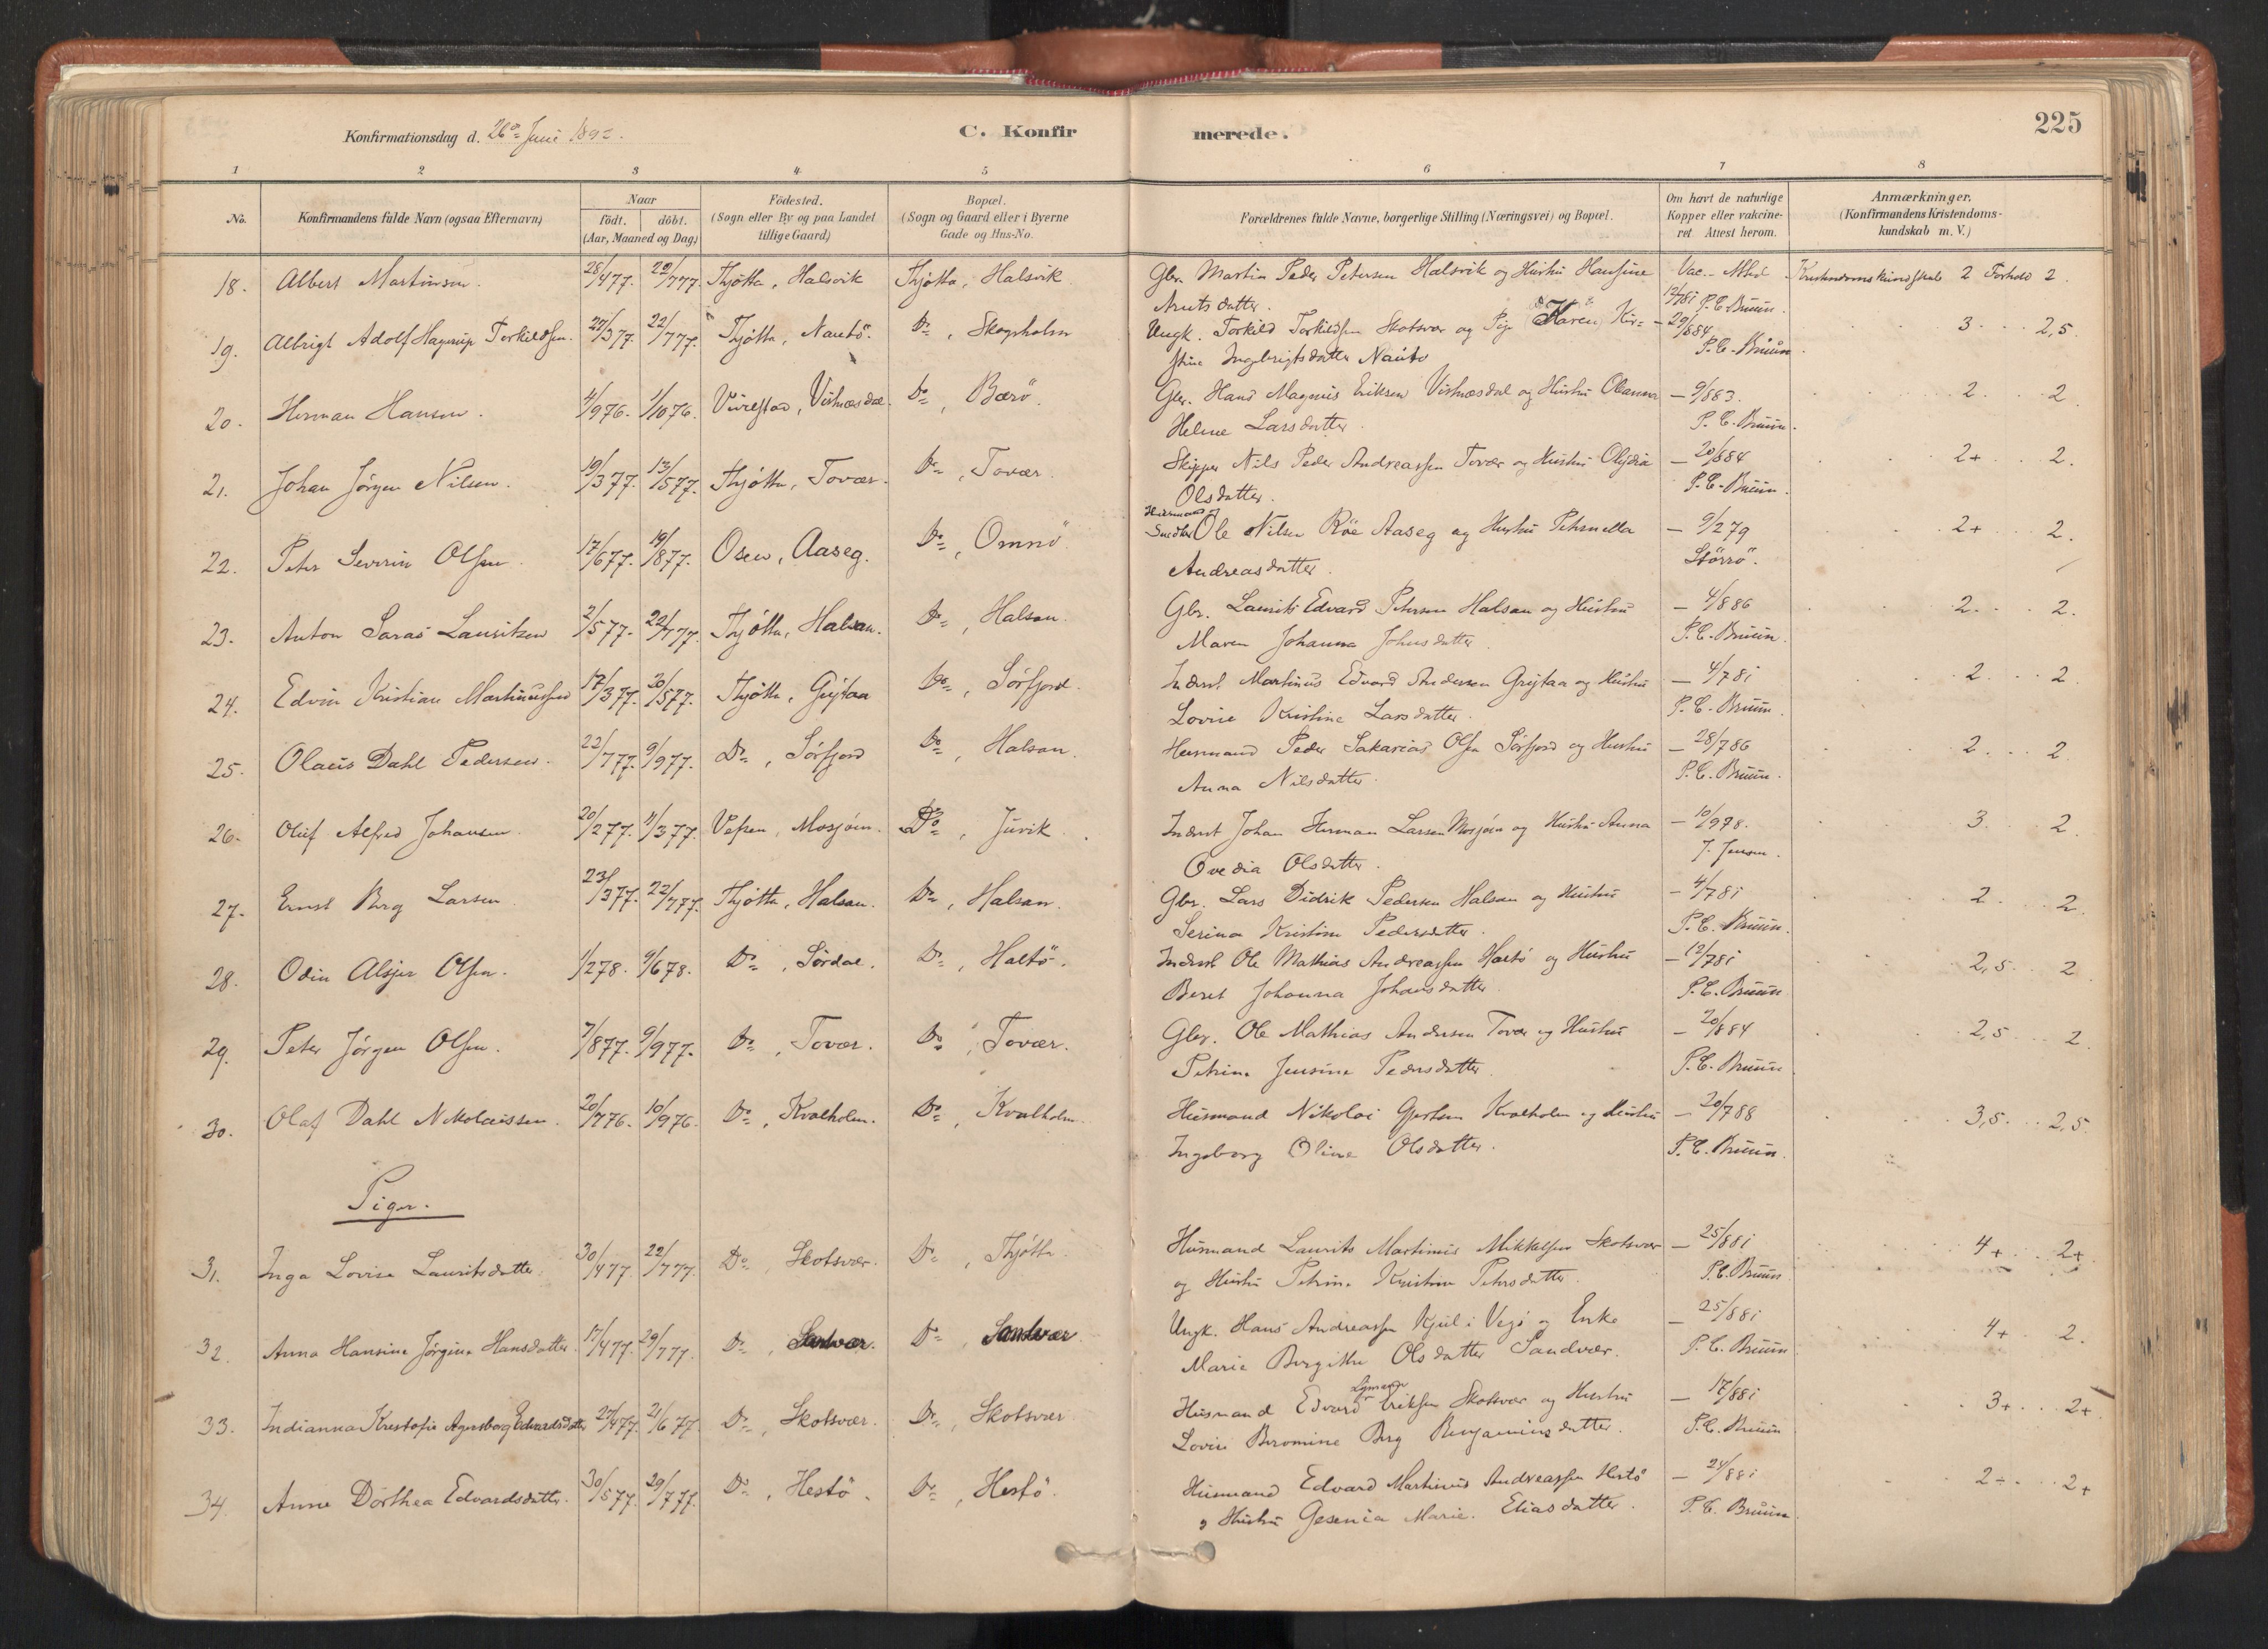 Konfirmationsdag d. 26de Juni 1892.
C. Konfirmerede.
225
1 2 3 4 5 6 7 8
No.
Konfirmandens fulde Navn (ogsaa Efternavn)
Naar
födt. döbt.
(Aar, Maaned og Dag)
Födested.
(Sogn eller By og paa Landet
tillige Gaard)
Bopæl.
(Sogn og Gaard eller i Byerne
Gade og Hus-No.
Forældrenes fulde Navne, borgerlige Stilling (Næringsvei) og Bopæl.
Om havt de naturlige
Kopper eller vakcine-
ret Attest herom.
Anmærkninger.
(Konfirmandens Kristendoms-
kundskab m. V.)
18. Albert Martinsen. 28/4 77. 22/7 77. Thjøtta, Halsvik Thjøtta, Halsvik Gbr. Martin Peder Petersen Halsvik og Hustru Hansine Vac. Attest Kristendomskundskab 2 Forhold 2.
Arntsdatter. 12/7 81 P.C. Bruun.
19. Albrigt Adolf Hagerup Torkildsen. 22/3 77. 22/7 77. Thjøtta, Nautö. Do, Skogsholm Ungk. Torkild Torkildsen Skotsvær og Pige Karen Kir= — 29/8 84 3 2,5.
stine Ingebrigtsdatter Nautö P.C. Bruun
20. Herman Hansen. 4/9 76. 1/10 76. Vivelstad, Vistnesdal. Do, Bærö Gbr. Hans Magnus Eriksen Vistnæsdal og Hustru Olianna — 9/8 83. 2 2
Helene Larsdatter. P.C. Bruun.
21. Johan Jørgen Nilsen. 19/3 77. 13/5 77. Thjøtta, Tovær. Do, Tovær. Skipper Nils Peder Andreassen Tovær og Hustru — 20/8 84 2+ 2.
Olsdatter. P.C. Bruun.
22. Peter Severin Olsen. 17/6 77. 19/8 77. Osen, Aaseg. Do, Omnö Husmand
Ole Nilsen Röe Aaseg og Hustru Petrnella — 9/2 79 2+ 2.
Andreasdatter. Störrö.
23. Anton Saras Lauritzen 2/5 77. 22/7 77. Thjøtta, Halsan. Do, Halsan. Gbr. Laurits Edvard Petersen Halsan og Hustru — 4/8 86 2. 2.
Maren Johanna Johnsdatter. P.C. Bruun.
24. Edvin Kristian Martinussen 17/3 77. 20/5 77. Thjøtta, Grytaa Do, Sörfjord. Inderst Martinus Edvard Andersen Grytaa og Hustru — 4/7 81 2 2
Lovise Kristine Larsdatter. P.C. Bruun
25. Olaus Dahl Pedersen. 22/7 77. 9/9 77. Do, Sörfjord Do, Halsan. Husmand Peder Sakarias Olsen Sörfjord og Hustru — 28/7 86 2 2
Anna Nilsdatter. P.C. Bruun.
26. Oluf Alfred Johansen. 20/2 77. 11/3 77. Vefsen, Mosjøen. Do, Juvik Inderst Johan Herman Larsen Mosjøen og Hustru Anna — 10/9 78. 3. 2.
Ovedia Olsdatter. J. Jensen.
27. Ernst Berg Larsen 23/3 77. 22/7 77. Thjøtta, Halsan. Do, Halsan. Gbr. Lars Didrik Pedersen Halsan og Hustru — 4/7 81 2 2
Serina Kristine Pedersdatter. P.C. Bruun.
28. Odin Alsjer Olsen. 1/2 78. 9/6 78. Do, Sördal. Do, Hæstö. Inderst Ole Mathias Andreassen Hæstö og Hustru — 12/7 81 2,5 2
Beret Johanna Johansdatter. P.C. Bruun
29. Peter Jørgen Olsen. 7/8 77. 9/9 77. Do, Tovær. Do, Tovær. Gbr. Ole Mathias Andersen Tovær og Hustru — 20/8 84 2,5 2
Petrine Jensine Pedersdatter. P.C. Bruun
30. Olaf Dahl Nikolaissen. 20/7 76. 10/9 76. Do, Kvalholm. Do, Kvalholm. Husmand Nikolai Gjertsen Kvalholm og Hustru — 20/7 88 3,5 2,5
Ingeborg Oline Olsdatter. P.C. Bruun.
Piger.
31. Inga Lovise Lauritsdatter. 30/4 77. 22/7 77. Do, Skotsvær. Do, Thjøtta. Husmand Laurits Martinus Mikkelsen Skotsvær — 25/8 81 4+ 2+
og Hustru Petrine Kristine Petersdatter. P.C. Bruun
32. Anna Hansine Jørgine Hansdatter. 17/4 77. 29/7 77. Do, Sandvær. Do, Sandvær. Ungk. Hans Andreassen Kjul i Vegø og Enke — 25/8 81 4+ 2.
Marie Bergitte Olsdatter Sandvær. P.C. Bruun
33. Indianna Kristofie Agnsborg Edvardsdatter 27/4 77. 21/6 77. Do, Skotsvær. Do, Skotsvær Husmand Edvard Lymann Eriksen Skotsvær og Hustru — 17/8 81 3+ 2+
Lovise Beromine Berg Benjaminsdatter. P.C. Bruun
34. Anne Dorthea Edvardsdatter. 30/5 77. 29/7 77. Do, Hestö. Do, Hestö. Husmand Edvard Martinus Andreassen Hestö — 24/8 81 2+ 2+
og Hustru Gesenia Marie Eliasdatter. P.C. Bruun